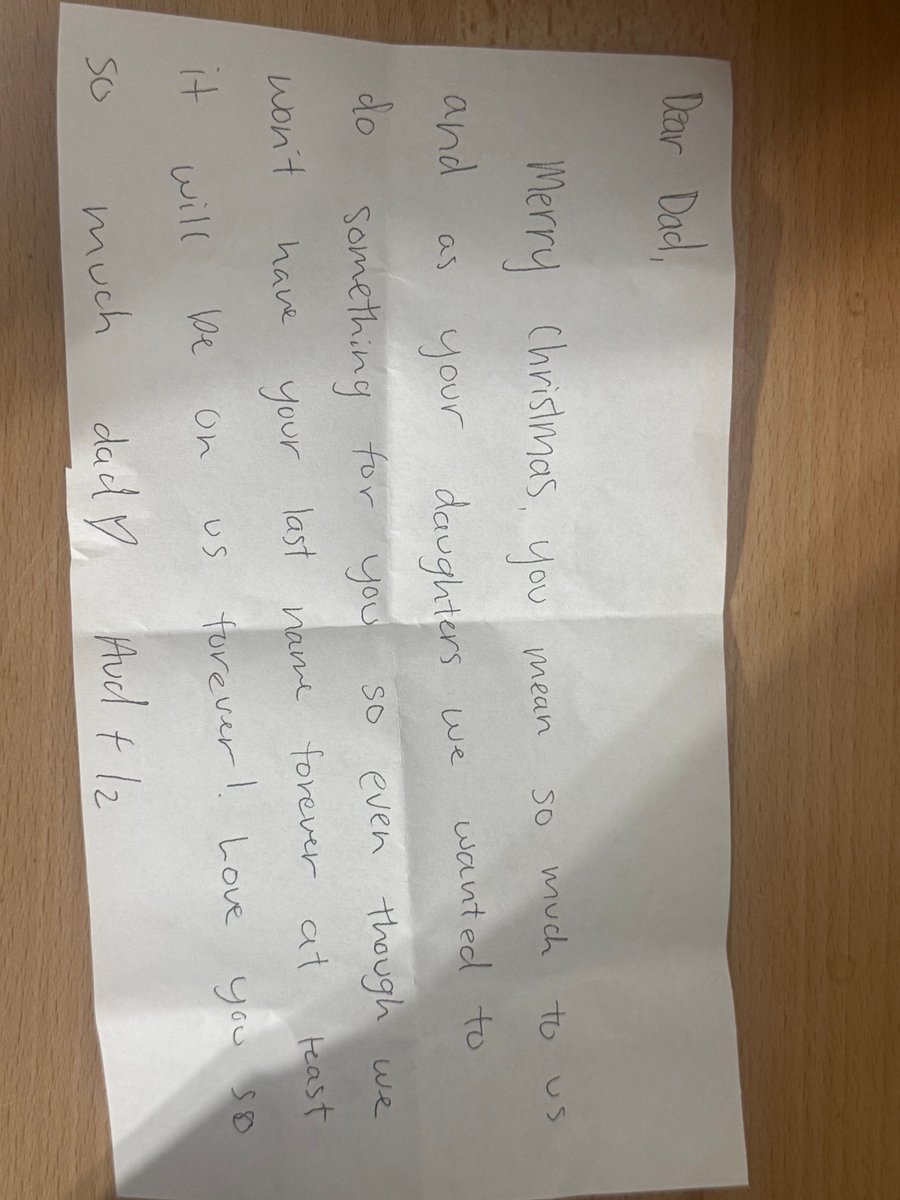 Dear Dad,
Merry Christmas, you mean so much to us
and as your daughters we wanted to
do something for you so even though we
won't have your last name forever at least
it will be on us forever! Love you so
so much dad♡ Aud +